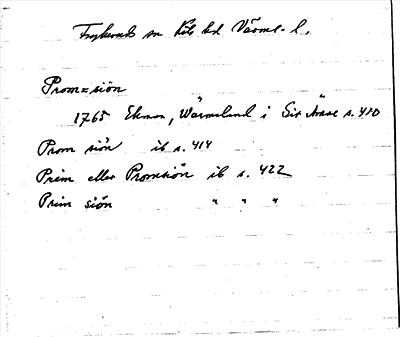 Frykerud sn Kils hd Värml. l.
Prom=siön
1765 Ekman, Wärmeland i Sit ämne s. 410
Prom siön ib s. 414
Prim eller Promsiön ib s. 422
Prim siön " " "